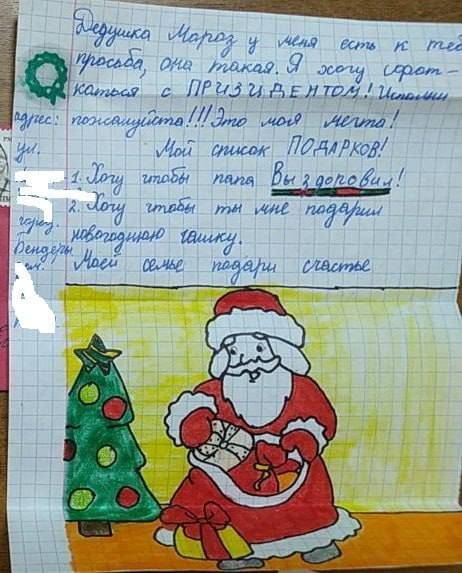 Дедушка Мороз у меня есть к теб
просьба, она такая. Я хочу сфот-
каться с ПРИЗИДЕНТОМ! Исполни
адрес: пожалуйста!!! Это моя мечта!
ул. Мой список ПОДАРКОВ!
1. Хочу чтобы папа Выздоровил!
2. Хочу чтобы ты мне подарил
город. новогоднюю чашку.
Бендеры
Моей семье подари счастье